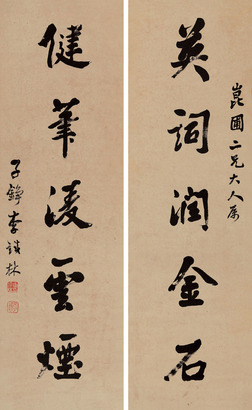 崑圃二兄大人屬
英詞潤金石
健筆凌雲煙
子錚李林